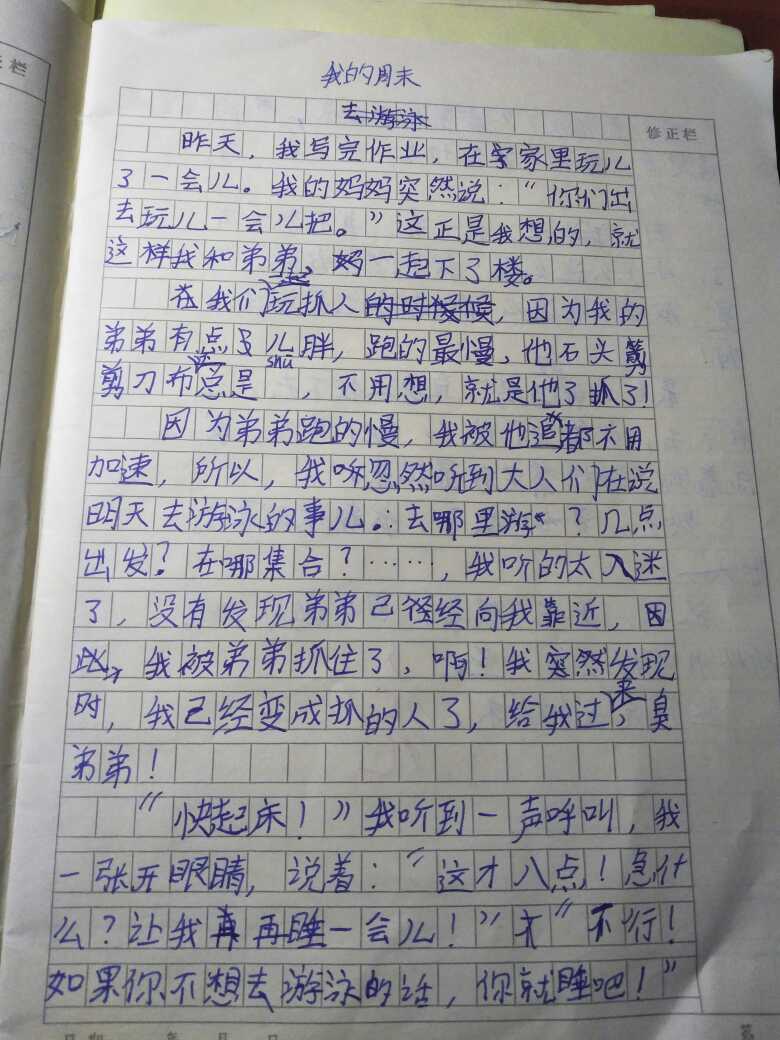 栏
我的周末
去游泳
修正栏
昨天，我写完作业，在家里玩儿
了一会儿。我的妈妈突然说："你们出
去玩儿一会儿把。"这正是我想的，就
这样我和弟弟一起下了楼。
我们玩抓人，因为我的
弟弟有点儿胖，跑的最慢，他石头
shū
剪刀布总是，不用想，就是他了抓了！
因为弟弟跑的慢，我被他追都不用
加速，所以，我忽然听到大人们在说
明天去游泳的事儿。：去哪里游？几点
出发？在哪集合？……，我听的太入迷
了，没有发现弟弟已经向我靠近，因
此，我被弟弟抓住了，啊！我突然发现
时，我已经变成抓的人了，给我过来，臭
弟弟！
"快起床！"我听到一声呼叫，我
一张开眼睛，说着："这才八点！急什
么？让我再睡一会儿！""不行！
如果你不想去游泳的话，你就睡吧！"
日期 年 月 日
第